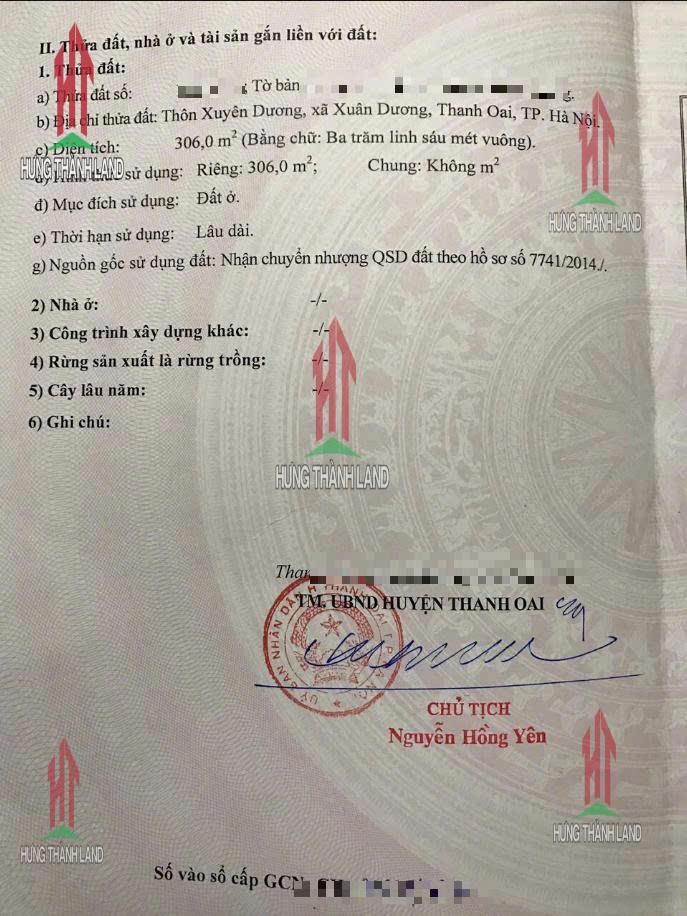 II. Thửa đất, nhà ở và tài sản gắn liền với đất:
1. Thửa đất:
a) Thửa đất số: ; Tờ bản
b) Địa chỉ thửa đất: Thôn Xuyên Dương, xã Xuân Dương, Thanh Oai, TP. Hà Nội.
c) Diện tích: 306,0 m² (Bằng chữ: Ba trăm linh sáu mét vuông).
sử dụng: Riêng: 306,0 m²; Chung: Không m²
đ) Mục đích sử dụng: Đất ở.
e) Thời hạn sử dụng: Lâu dài.
g) Nguồn gốc sử dụng đất: Nhận chuyển nhượng QSD đất theo hồ sơ số 7741/2014./.
2) Nhà ở: -/-
3) Công trình xây dựng khác: -/-
4) Rừng sản xuất là rừng trồng: -/-
5) Cây lâu năm: -/-
6) Ghi chú:
TM. UBND HUYỆN THANH OAI
CHỦ TỊCH
Nguyễn Hồng Yên
Số vào sổ cấp GCN
HƯNG THÀNH LAND
HƯNG THÀNH LAND
HƯNG THÀNH LAND
HƯNG THÀNH LAND
HƯNG THÀNH LAND